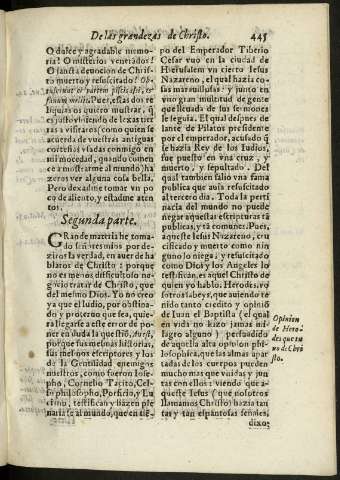 De las grandezas de Christo. 445
O dulce y agradable memoria!
O misterios venerados!
O sancta deuocion de Christo
muerto y resuscitado!
piscis assi, et
fauum mellis. Pues, estas dos reliquias
os quiero mostrar, q̃
es justo viniendo de lexas tierras
a visitaros (como quien se
acuerda de vuestras antiguas
cortesias vsadas conmigo en
mi mocedad, quando comence
a mostrarme al mundo) hazeros
ver alguna cosa bella.
Pero dexadme tomar vn poco
de aliento, y estadme atentos.
Segunda parte.
GRan de materia he tomado
señores mios por deziros
la verdad, en auer de hablaros
de Christo: porque
no es menos dificultoso negocio
tratar de Christo, que
del mismo Dios. Yo no creo
ya que el Iudio, por obstinado
y proteruo que sea, quiera
llegarse a esse error de poner
en duda la que
porque sus mesmas historias,
sus mesmos escriptores y los
de la Gentilidad enemigos
nuestros, como fueron Iosepho,
Cornelio Tacito, Celso
philosopho, Porficio, y Luciano,
testifican y hazen plenaria
fe al mundo, que en tiempo
del Emperador Tiberio
Cesar vuo en la ciudad de
Hierusalem vn cierto Iesus
Nazareno, el qual hazia cosas
marauillosas, y junto en
vno gran multitud de gente
que lleuada de sus sermones
le seguia. El qual despues delante
de Pilatos presidente
por el emperador, acusado q̃
se hazia Rey de los Iudios,
fue puesto en vna cruz, y
muerto, y sepultado. Del
qual tambien salio vna fama
publica que auia resuscitado
al tercero dia. Toda la pertinacia
del mundo no puede
negar aquestas escripturas tã
publicas, y tã comunes. Pues,
aqueste Iesus Nazareno, crucificado
y muerto como ninguno
lo niega; y resuscitado
como Dios y los Angeles lo
testifican, es aquel Christo de
quien yo hablo. Herodes, vosotros
sabeys, que auiendo tenido
tanto credito y opinió
de Iuan el Baptista (el qual
en vida no hizo jamas milagro
alguno) persuadido
de aquella alta opinion philosophica,
que las almas apartadas
de los cuerpos pueden
mucho mas que vnidas y juntas
con ellos: viendo que aqueste
Iesus (que nosotros
llamamos Christo) hazia tantas
y tan espantosas señales,
dixo:
Opinion
de Herodes
que tuuo
de Christo.